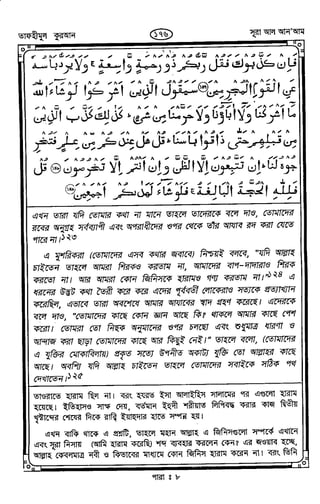 তাফহীমুল কুরআন
১৭৬
সূরা আল আন'আম
فَإِنْ كَذَّبُوكَ فَقُلْ رَبُّكُمْ ذُو رَحْمَةٍ وَّاسِعَةٍ ۚ وَلَا يُرَدُّ بَأْسُهٗ
عَنِ الْقَوْمِ الْمُجْرِمِيْنَ ۝ سَيَقُوْلُ الَّذِيْنَ اَشْرَكُوْا لَوْ شَآءَ اللّٰهُ
مَآ اَشْرَكْنَا وَلَآ اٰبَآؤُنَا وَلَا حَرَّمْنَا مِنْ شَيْءٍ ؕ كَذٰلِكَ كَذَّبَ الَّذِيْنَ
مِنْ قَبْلِهِمْ حَتّٰى ذَاقُوْا بَاْسَنَا ؕ قُلْ هَلْ عِنْدَكُمْ مِّنْ عِلْمٍ فَتُخْرِ
جُوْهُ لَنَا ؕ اِنْ تَتَّبِعُوْنَ اِلَّا الظَّنَّ وَاِنْ اَنْتُمْ اِلَّا تَخْرُصُوْنَ ۝ قُلْ
فَلِلّٰهِ الْحُجَّةُ الْبَالِغَةُ ۚ فَلَوْ شَآءَ لَهَدٰىكُمْ اَجْمَعِيْنَ ۝
এখন তারা যদি তোমার কথা না মানে তাহলে তাদেরকে বলে দাও, তোমাদের
রবের অনুগ্রহ সর্বব্যাপী এবং অপরাধীদের ওপর থেকে তাঁর আযাব রদ করা যেতে
পারে না।১২৩
এ মুশরিকরা (তোমাদের এসব কথার জবাবে) নিশ্চয়ই বলবে, "যদি আল্লাহ
চাইতেন তাহলে আমরা শিরকও করতাম না, আমাদের বাপ-দাদারাও শিরক
করতো না। আর আমরা কোন জিনিসকে হারামও গণ্য করতাম না।"১২৪ এ
ধরনের উদ্ভট কথা তৈরী করে করে এদের পূর্ববর্তী লোকেরাও সত্যকে প্রত্যাখ্যান
করেছিল, এভাবে তারা অবশেষে আমার আযাবের স্বাদ গ্রহণ করেছে। এদেরকে
বলে দাও, "তোমাদের কাছে কোন জ্ঞান আছে কি? থাকলে আমার কাছে পেশ
করো। তোমরা তো নিছক অনুমানের ওপর চলছো এবং শুধুমাত্র ধারণা ও
আন্দাজ করা ছাড়া তোমাদের কাছে আর কিছুই নেই।" তাহলে বলো, (তোমাদের
এ যুক্তির মোকাবিলায়) প্রকৃত সত্যে উপনীত অকাট্য যুক্তি তো আল্লাহর কাছে
আছে। অবশ্যি যদি আল্লাহ চাইতেন তাহলে তোমাদের সবাইকে সঠিক পথ
দেখাতেন।১২৫
তাওরাতে হারাম ছিল না। বরং হযরত ঈসা আলাইহিস সালামের পর এগুলো হারাম
হয়েছে। ইতিহাসও সাক্ষ দেয়, বর্তমান ইহুদী শরীয়াত লিপিবদ্ধ করার কাজ দ্বিতীয়
খৃষ্টাব্দের শেষের দিকে রাব্বি ইয়াহুদার হাতে সম্পন্ন হয়।
এখন বাকি থাকে এ প্রশ্নটি, তাহলে মহান আল্লাহ এ জিনিসগুলো সম্পর্কে এখানে
এবং সূরা নিসায় (আমি হারাম করেছি) শব্দ ব্যবহার করলেন কেন? এর জওয়াব হচ্ছে,
আল্লাহ কেবলমাত্র নবী ও কিতাবের মাধ্যমে কোন জিনিস হারাম করেন না। বরং তিনি
পারা : ৮